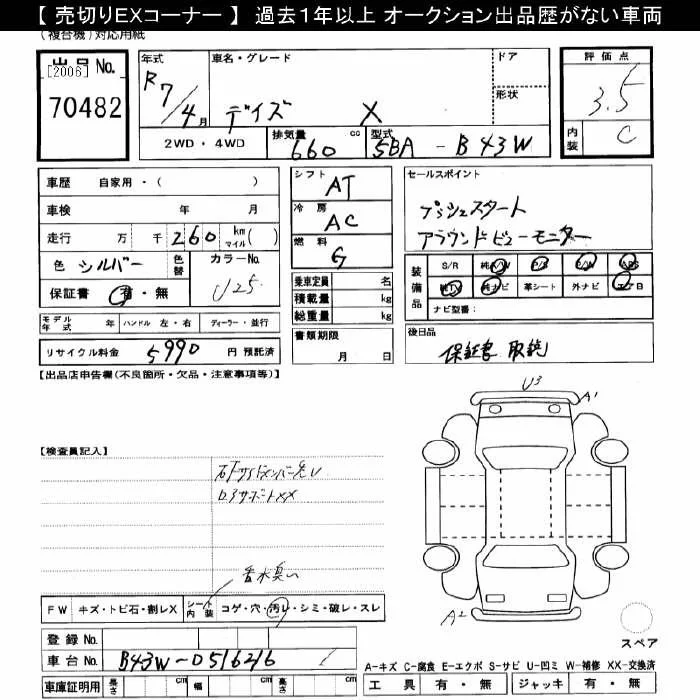 【 売切りEXコーナー 】 過去1年以上 オークション出品歴がない車両
(複合機)対応用紙
出品 No. [2006] 70482
年式 R7/4月
車名・グレード デイズ X
ドア
形状
評価点 3.5
内装 C
2WD ・ 4WD
排気量 660 cc
型式 5BA - B43W
車歴 自家用・( )
車検 年 月
走行 万 千 260 km マイル( )
色 シルバー 色替 カラーNo. J25
保証書 有・無
シフト AT
冷房 AC
燃料 G
乗車定員 名
積載量 kg
総重量 kg
セールスポイント
プッシュスタート
アラウンドビューモニター
装備品 S/R 純A/W P/S P/W ABS
純TV 純ナビ 革シート 外ナビ エアB
ナビ型番:
モデル年式 年 ハンドル 左・右 ディーラー・並行
リサイクル料金 5990 円 預託済
書類期限 月 日
後日品
保証書 取説
【出品店申告欄(不良箇所・欠品・注意事項等)】
U3
A1
【検査員記入】
右Fサイドメンバー先
ロアサポートXX
香水臭い
FW キズ・トビ石・割レX
シート内装 コゲ・穴・汚レ・シミ・破レ・スレ
A2
スペア
登録 No.
車台 No. B43W-0516216
車庫証明用 長さ cm 幅 cm 高さ cm
A-キズ C-腐食 E-エクボ S-サビ U-凹ミ W-補修 XX-交換済
工具 有・無 ジャッキ 有・無